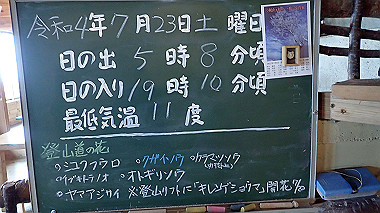 令和4年7月23日土曜日
日の出 5時8分頃
日の入り19時10分頃
最低気温 11度
登山道の花
○シコクフウロ ○クガイソウ ○ケラマツソウ
○イブキトラノオ ○オトギリソウ
○ヤマアジサイ ※登山リフトに「キレンゲショウマ」開花